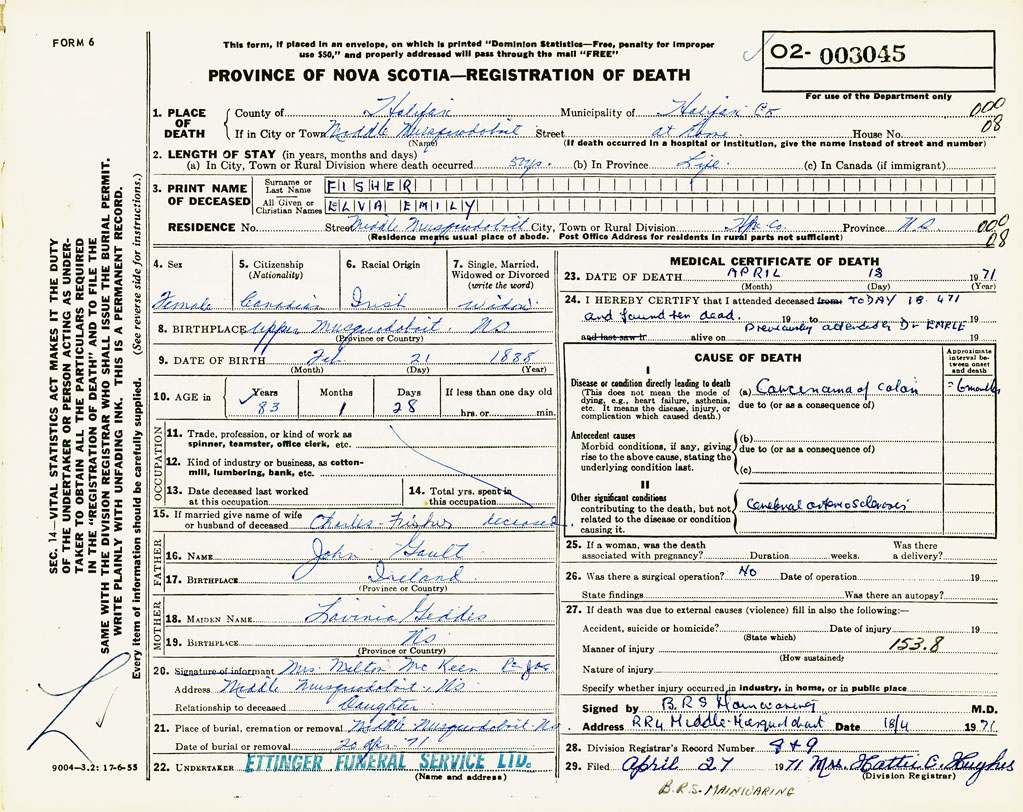 FORM 6
This form, if placed in an envelope, on which is printed "Dominion Statistics—Free, penalty for improper
use $50," and properly addressed will pass through the mail "FREE"
O2- 003045
For use of the Department only
PROVINCE OF NOVA SCOTIA—REGISTRATION OF DEATH
000
08
1. PLACE OF DEATH
County of Halifax Municipality of Halifax Co
If in City or Town Middle Musquodoboit Street at home House No.
(Name) (If death occurred in a hospital or institution, give the name instead of street and number)
2. LENGTH OF STAY (in years, months and days)
(a) In City, Town or Rural Division where death occurred 5 yrs. (b) In Province Life. (c) In Canada (if immigrant)
3. PRINT NAME OF DECEASED
Surname or Last Name FISHER
All Given or Christian Names ELVA EMILY
RESIDENCE No. Street Middle Musquodoboit City, Town or Rural Division Hfx. Co. Province N S
(Residence means usual place of abode. Post Office Address for residents in rural parts not sufficient)
000
08
4. Sex
Female
5. Citizenship
(Nationality)
Canadian
6. Racial Origin
Irish
7. Single, Married, Widowed or Divorced
(write the word)
Widow.
8. BIRTHPLACE Upper Musquodoboit. NS
(Province or Country)
9. DATE OF BIRTH Feb 21 1888
(Month) (Day) (Year)
10. AGE in
Years Months Days If less than one day
83 1 28 hrs. or min.
OCCUPATION
11. Trade, profession, or kind of work as
spinner, teamster, office clerk, etc.
12. Kind of industry or business, as cotton-
mill, lumbering, bank, etc.
13. Date deceased last worked
at this occupation
14. Total yrs. spent in
this occupation
15. If married give name of wife
or husband of deceased Charles Fisher deceased.
FATHER
16. NAME John Gault
17. BIRTHPLACE Ireland
(Province or Country)
MOTHER
18. MAIDEN NAME Lavinia Geddes
19. BIRTHPLACE NS
(Province or Country)
20. Signature of informant Mrs. Milton McKeen
Address Middle Musquodoboit, NS
Relationship to deceased Daughter
21. Place of burial, cremation or removal Middle Musquodoboit NS
Date of burial or removal 20 Apr. 71
22. UNDERTAKER ETTINGER FUNERAL SERVICE LTD.
(Name and address)
MEDICAL CERTIFICATE OF DEATH
23. DATE OF DEATH APRIL 18 1971
(Month) (Day) (Year)
24. I HEREBY CERTIFY that I attended deceased from TODAY 18.471
and found her dead. 19 to 19
Previously attended by Dr
and last saw h alive on 19
CAUSE OF DEATH
Approximate interval between onset and death
I
Disease or condition directly leading to death
(This does not mean the mode of
dying, e.g., heart failure, asthenia,
etc. It means the disease, injury, or
complication which caused death.)
(a) Carcenama of colan = 6 months
due to (or as a consequence of)
Antecedent causes
Morbid conditions, if any, giving
rise to the above cause, stating the
underlying condition last.
(b)
due to (or as a consequence of)
(c)
II
Other significant conditions
contributing to the death, but not
related to the disease or condition
causing it.
Cerebral arteriosclerosis
25. If a woman, was the death
associated with pregnancy? Duration weeks. Was there a delivery?
26. Was there a surgical operation? NO Date of operation 19
State findings Was there an autopsy?
27. If death was due to external causes (violence) fill in also the following:—
Accident, suicide or homicide? Date of injury 19
(State which)
Manner of injury 153.8
(How sustained)
Nature of injury
Specify whether injury occurred in industry, in home, or in public place
Signed by B.R.S Mainwaring M.D.
Address RR4 Middle Musquodobort Date 18/4 1971
28. Division Registrar's Record Number 8+9
29. Filed April 27 1971 Mrs. Hattie C. Hughes
(Division Registrar)
B.R.S. MAINWARING
SEC. 14—VITAL STATISTICS ACT MAKES IT THE DUTY
OF THE UNDERTAKER OR PERSON ACTING AS UNDER-
TAKER TO OBTAIN ALL THE PARTICULARS REQUIRED
IN THE "REGISTRATION OF DEATH" AND TO FILE THE
SAME WITH THE DIVISION REGISTRAR WHO SHALL ISSUE THE BURIAL PERMIT.
WRITE PLAINLY WITH UNFADING INK. THIS IS A PERMANENT RECORD.
Every item of information should be carefully supplied. (See reverse side for instructions.)
9004-3.2: 17-6-55